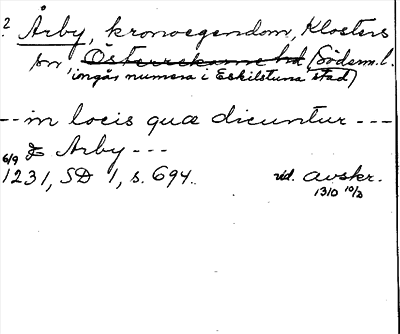 ? Årby, kronoegendom, Klosters
sn, Österrekarne hd, Södem.l.
(ingår numera i Eskilstuna stad)
-- in locis quæ dicuntur ---
& Arby ---
6/9
1231, SD 1, s. 694. vid. avskr.
1310 10/2